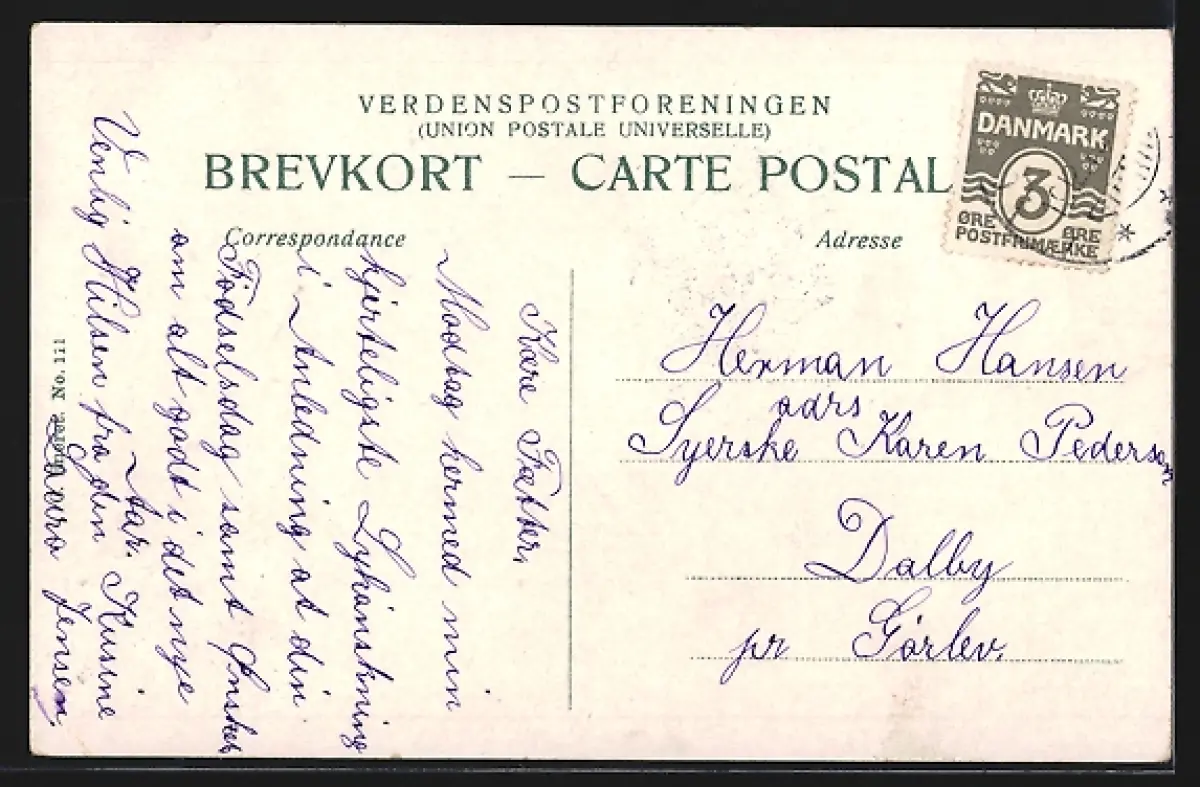 VERDENSPOSTFORENINGEN
(UNION POSTALE UNIVERSELLE)
BREVKORT — CARTE POSTAL
Correspondance
Adresse
DANMARK
3
ØRE ØRE
POSTFRIMÆRKE
Kære Fætter,
Modtag hermed min
hjerteligste Lykønskning
i Anledning at din
Fødselsdag samt Ønsker
om alt godt i det nye
Aar.
Venlig Hilsen fra din Kusine
Jensen
No. 111
Herman Hansen
adrs
Syerske Karen Pedersen
Dalby
pr Gørlev.